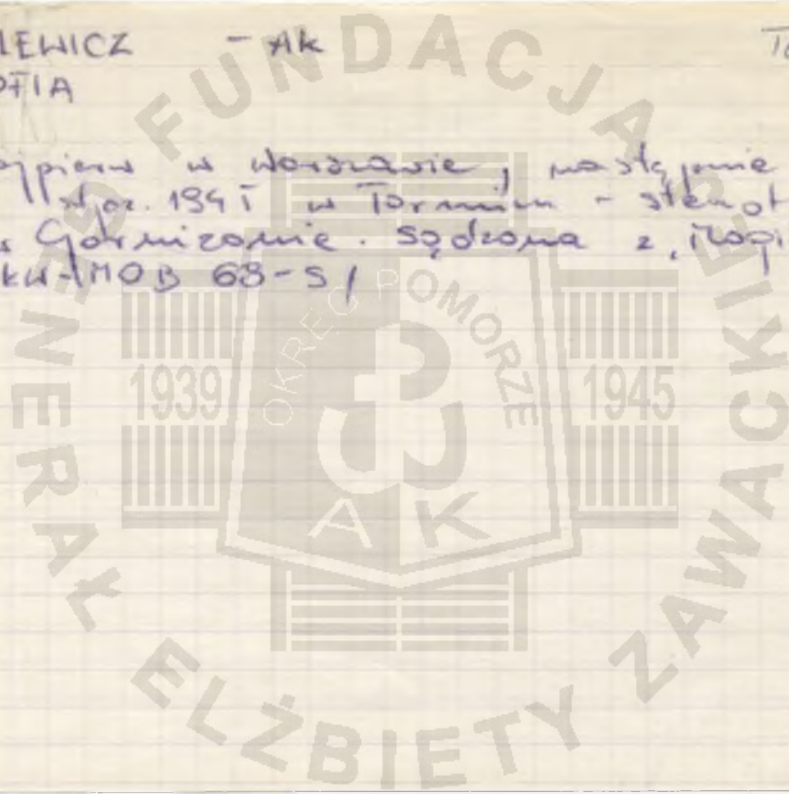 LEWICZ - AK
OFIA
ajpierw w Warszawie, następnie
stycz. 1945 w Toruniu - stenot
w Garnizonie. Sądzona z
KW-MOB 68-S/
FUNDACJA
GENERAŁ ELŻBIETY ZAWACKIEJ
OKRĘG POMORZE
1939 1945
AK